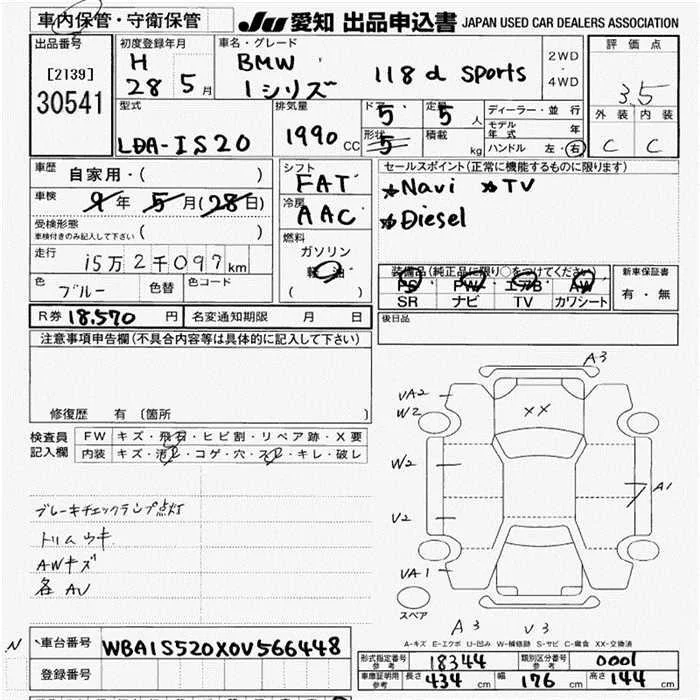 車内保管・守衛保管 JU 愛知 出品申込書 JAPAN USED CAR DEALERS ASSOCIATION
出品番号 初度登録年月 車名・グレード 評価点
[2139] H BMW 2WD
30541 28 5月 1シリズ 118d Sports 4WD 3.5
型式 排気量 ドア 定員 ディーラー・並行 外装 内装
LDA-1S20 1990 CC 5 5人 モデル年式 年 C C
形状 5 積載 kg ハンドル 左・右
車歴 自家用・( ) シフト FAT セールスポイント(正常に機能するものに限ります)
車検 9年 5月(28日) 冷房 AAC ★Navi ★TV
受検形態 ★Diesel
車検付きのみ記入して下さい ( ) 燃料
走行 15万2千097km ガソリン
色 ブルー 色替 色コード 軽油 ( )
装備品(純正品に限り○をつけてください) 新車保証書
PS PW エアB AW 有・無
SR ナビ TV カワシート
R券 18.570円 名変通知期限 月 日 後日品
注意事項申告欄(不具合内容等は具体的に記入して下さい)
修復歴 有 〔箇所 〕
検査員 FW キズ・飛石・ヒビ割・リペア跡・X要
記入欄 内装 キズ・汚れ・コゲ・穴・スレ・キレ・破レ
ブレーキチェックランプ点灯
トリムウキ
AWキズ
各AU
A3
UA2
W2
XX
W2
A1
U2
UA1
スペア
A3 U3
A-キズ E-エクボ U-凹み W-補修跡 S-サビ C-腐食 XX-交換済
N 車台番号 WBA1S520X0V566448
登録番号
形式指定番号 参考 18344 類別区分番号 参考 0001
車庫証明用 参考 長さ 434 cm 幅 176 cm 高さ 144 cm